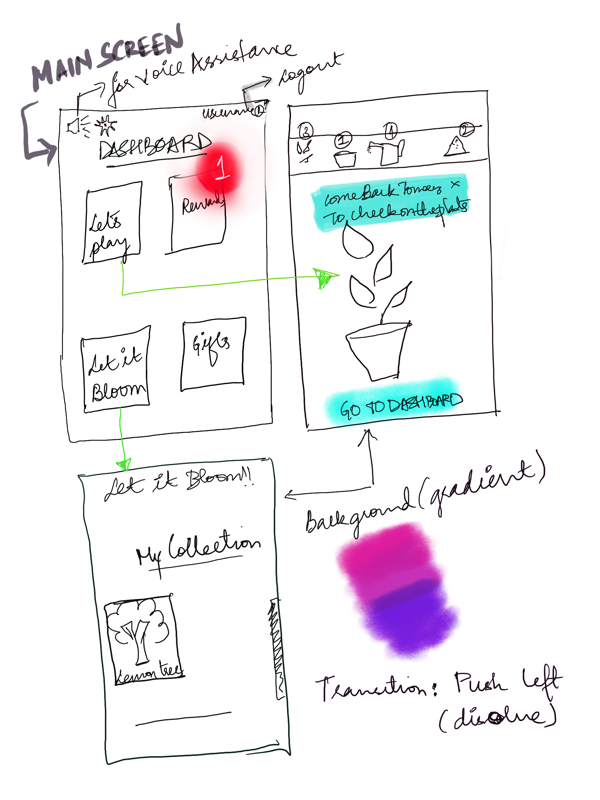 MAIN SCREEN
for Voice Assistance
Logout
username
DASHBOARD
1
Let's play
Reward
Let it Bloom
Gifts
3 1 4 2
Come Back Tomorow x
To check on the plants
GO TO DASHBOARD
Let it Bloom!!
My Collection
Lemon tree
Background (gradient)
Transition: Push Left
(disolve)